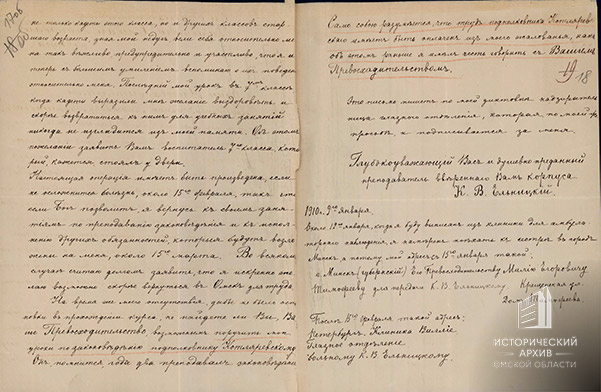 не только кадеты этого класса, но и других классов стар-
шого возраста, зная мой недуг вели себя относительно ме-
ня так вежливо предупредительно и участливо, что я и
теперь с большим умилением вспоминаю о их поведении
относительно меня. Последний мой урок въ 7омъ классе,
когда кадеты выразили мне желание выздороветь и
скорее возвратиться къ нимъ для учебныхъ занятий
никогда не изгладится изъ моей памяти. Объ этомъ
пожелании заявить Вамъ воспитатель 7го класса, кото-
рый, кажется стоялъ у двери.
Настоящая операция имеетъ быть произведена, если
не осложнится болезнь, около 15го февраля, такъ что
если Богъ позволитъ я вернусь къ своимъ заня-
тиямъ по преподаванию законоведения и къ испол-
нению другихъ обязанностей, которыя будутъ возло-
жены на меня, около 15го марта. Во всякомъ
случае считаю долгомъ заявить, что я искренно же-
лаю возможно скорее вернуться въ Омскъ для труда
На время же моего отсутствия, дабы не было оста-
новки въ прохождении курса, не найдете ли Вы, Ва-
ше Превосходительство возможнымъ поручить мои
уроки по законоведению подполковнику Котляревскому
Онъ, помнится, года два преподавалъ законоведение
Само собою разумеется, что трудъ подполковника Котлярев-
скаго имеетъ быть оплаченъ изъ моего жалованья, какъ
объ этомъ раньше я имелъ честь говорить съ Вашимъ
Превосходительствомъ.
18
Это письмо пишетъ по моей диктовке надзиратель-
ница глазного отделения, которая, по моей
просьбе, и подписывается за меня.
Глубокоуважающий Васъ и душевно преданный
преподаватель вверенного Вамъ корпуса
К. В. Ельницкий
1910 г. 3го января.
Около 13го января, когда я буду выписанъ изъ клиники для амбула-
торного наблюдения, я намеренъ поехать къ сестре въ городъ
Минскъ и потому мой адресъ съ 15го января такой:
г. Минскъ (губернский) Его Превосходительству Милию Егоровичу
Тимофееву для передачи К. В. Ельницкому.
Домъ Тимофеева.
После 15го февраля такой адресъ:
Петербургъ, Клиника Виллие
Глазное отделение
больному К. В. Ельницкому.
ИСТОРИЧЕСКИЙ
АРХИВ
ОМСКОЙ ОБЛАСТИ